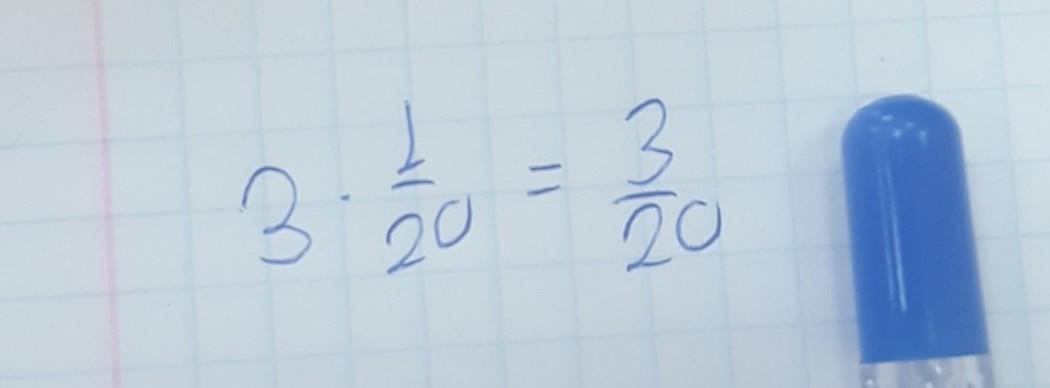 3 · 1/20 = 3/20